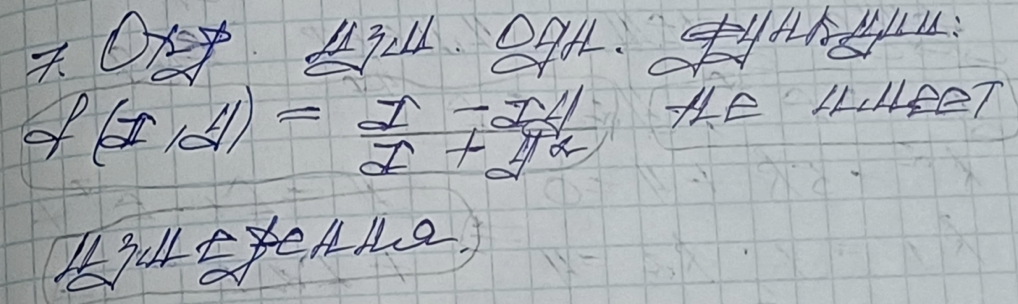 7. Опр. изм. одн. функции:
f(x, y) = (x - xy) / (x + y²) не имеет
измерения.